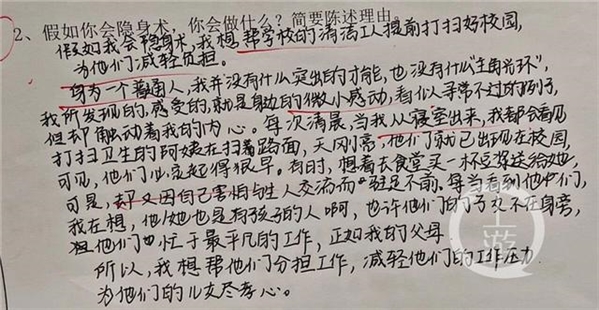 2、假如你会隐身术，你会做什么？简要陈述理由
假如我会隐身术，我想帮学校的清洁工人提前打扫好校园，
为他们减轻负担。
身为一个普通人，我并没有什么突出的才能，也没有什么"主角光环"，
我所发现的，感受的，就是身边的微小感动，看似寻常不过的例子，
但却触动着我的内心。每次清晨，当我从寝室出来，我都会看见
打扫卫生的阿姨在扫着路面，天刚亮，他们就已出现在校园，
可见，他们一定起得很早。有时，想着去食堂买一杯豆浆送给她，
可是，却又因自己害怕与生人交流而驻足不前。每当看到他们，
我在想，他/她也是有孩子的人啊，也许他们的子女不在身旁，
但他们也忙于最平凡的工作，正如我的父母
所以，我想帮他们分担工作，减轻他们的工作压力
为他们的儿女尽孝心。
上游